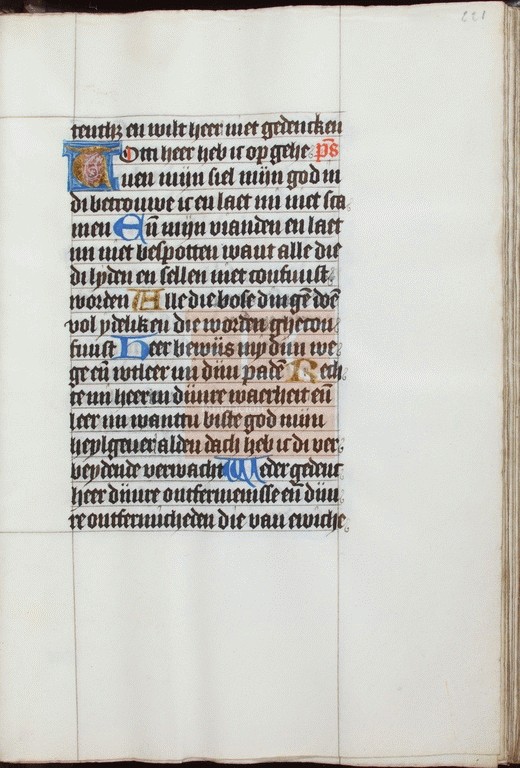 221
teuth3 en wilt heer niet gedencken
Tom heer heb ic op gehe ps
uen mijn siel mijn god in
di betrouwe ic en laet mi niet sca
men En̄ mijn vianden en laet
mi niet bespotten want alle die
di lyden en sellen niet confuust
worden Alle die bose dingē doē
vol ydelik en die worden ghecon
fuust Heer bewijs my dijn we
ge en̄ wtleer mi dijn padē Rech
te mi heer in dijnre waerheit en̄
leer mi wantu biste god mijn
heylgeuer al den dach heb ic di ver
beydende verwacht Weder gedenc
heer dijnre ontfermenisse en̄ dijn
re ontfermicheden die van ewiche